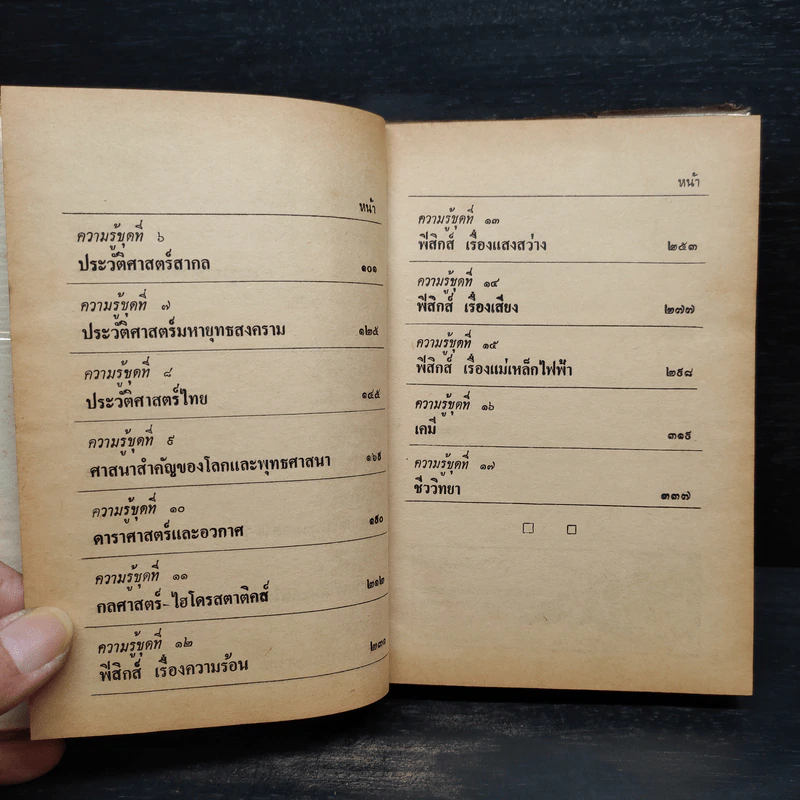 หน้า
ความรู้ชุดที่ ๖
ประวัติศาสตร์สากล ๑๐๑
ความรู้ชุดที่ ๗
ประวัติศาสตร์มหายุทธสงคราม ๑๒๕
ความรู้ชุดที่ ๘
ประวัติศาสตร์ไทย ๑๔๕
ความรู้ชุดที่ ๙
ศาสนาสำคัญของโลกและพุทธศาสนา ๑๖๙
ความรู้ชุดที่ ๑๐
ดาราศาสตร์และอวกาศ ๑๙๐
ความรู้ชุดที่ ๑๑
กลศาสตร์-ไฮโดรสตาติคส์ ๒๑๒
ความรู้ชุดที่ ๑๒
ฟิสิกส์ เรื่องความร้อน
หน้า
ความรู้ชุดที่ ๑๓
ฟิสิกส์ เรื่องแสงสว่าง ๒๕๓
ความรู้ชุดที่ ๑๔
ฟิสิกส์ เรื่องเสียง ๒๗๗
ความรู้ชุดที่ ๑๕
ฟิสิกส์ เรื่องแม่เหล็กไฟฟ้า ๒๙๘
ความรู้ชุดที่ ๑๖
เคมี ๓๑๙
ความรู้ชุดที่ ๑๗
ชีววิทยา ๓๓๗